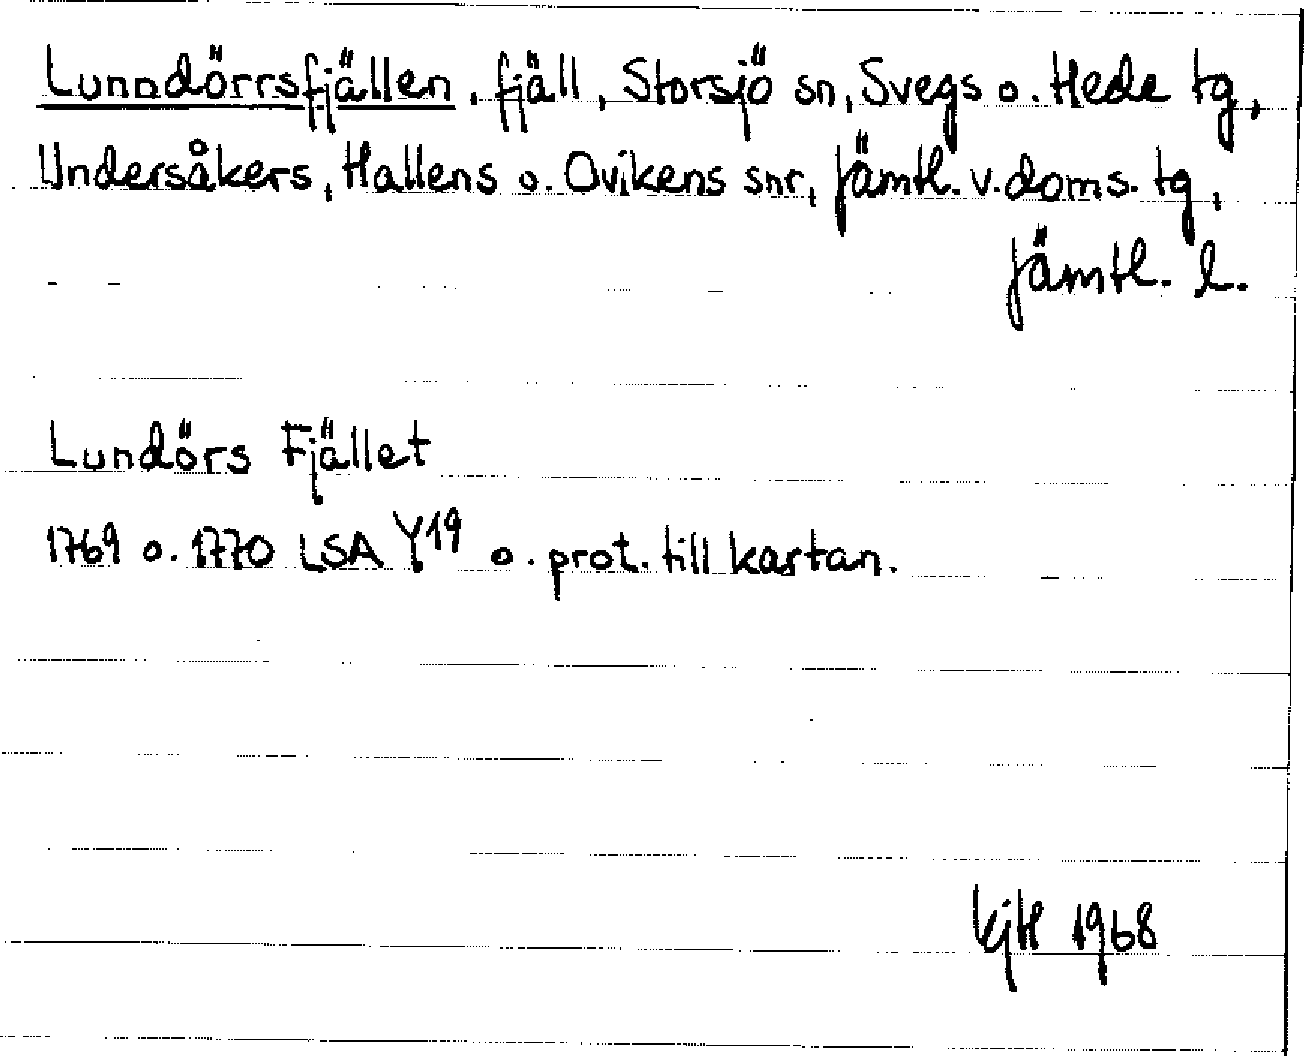 Lunndörrsfjällen, fjäll, Storsjö sn, Svegs o. Hede tg,
Undersåkers, Hallens o. Ovikens snr, Jämtl. v. doms. tg,
Jämtl. l.
Lundörs Fjället
1769 o. 1770 LSA Y19 o. prot. till kartan.
KjH 1968